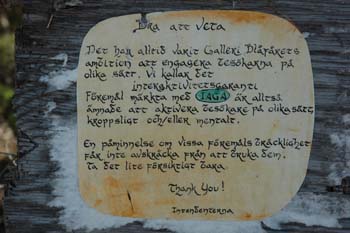 Bra att veta
Det har alltid varit Galleri Blåfärets
ambition att engagera besökarna på
olika sätt. Vi kallar det
interaktivitetsgaranti
Föremål märkta med IAGA är alltså
ämnade att aktivera besökare på olika sätt,
kroppsligt och/eller mentalt.
En påminnelse om vissa föremåls bräcklighet
får inte avskräcka från att bruka dem.
Ta det lite försiktigt bara.
Thank You!
Intendenterna